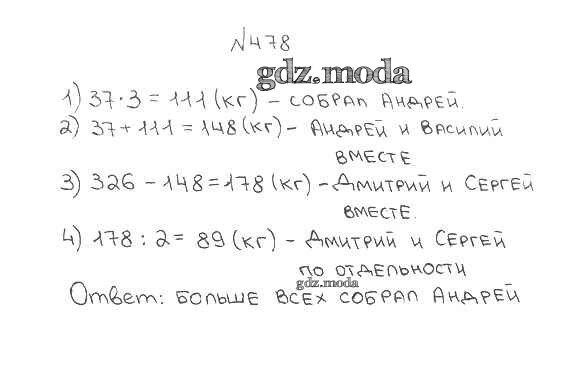 №478
gdz.moda
1) 37·3=111(кг) – СОБРАЛ АНДРЕЙ.
2) 37+111=148(кг) – АНДРЕЙ И ВАСИЛИЙ
ВМЕСТЕ
3) 326–148=178(кг) – ДМИТРИЙ И СЕРГЕЙ
ВМЕСТЕ.
4) 178:2=89(кг) – ДМИТРИЙ И СЕРГЕЙ
ПО ОТДЕЛЬНОСТИ
gdz.moda
Ответ: БОЛЬШЕ ВСЕХ СОБРАЛ АНДРЕЙ